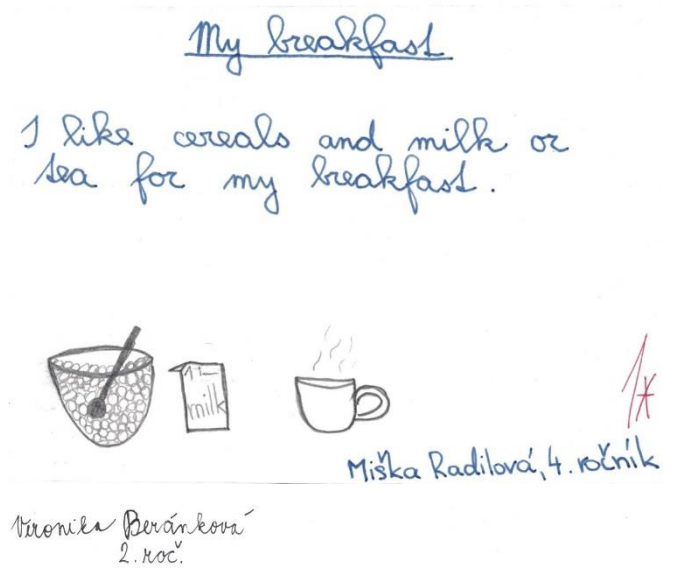 My breakfast
I like cereals and milk or
tea for my breakfast.
1 L
milk
1*
Miška Radilová, 4. ročník
Veronika Beránková
2. roč.